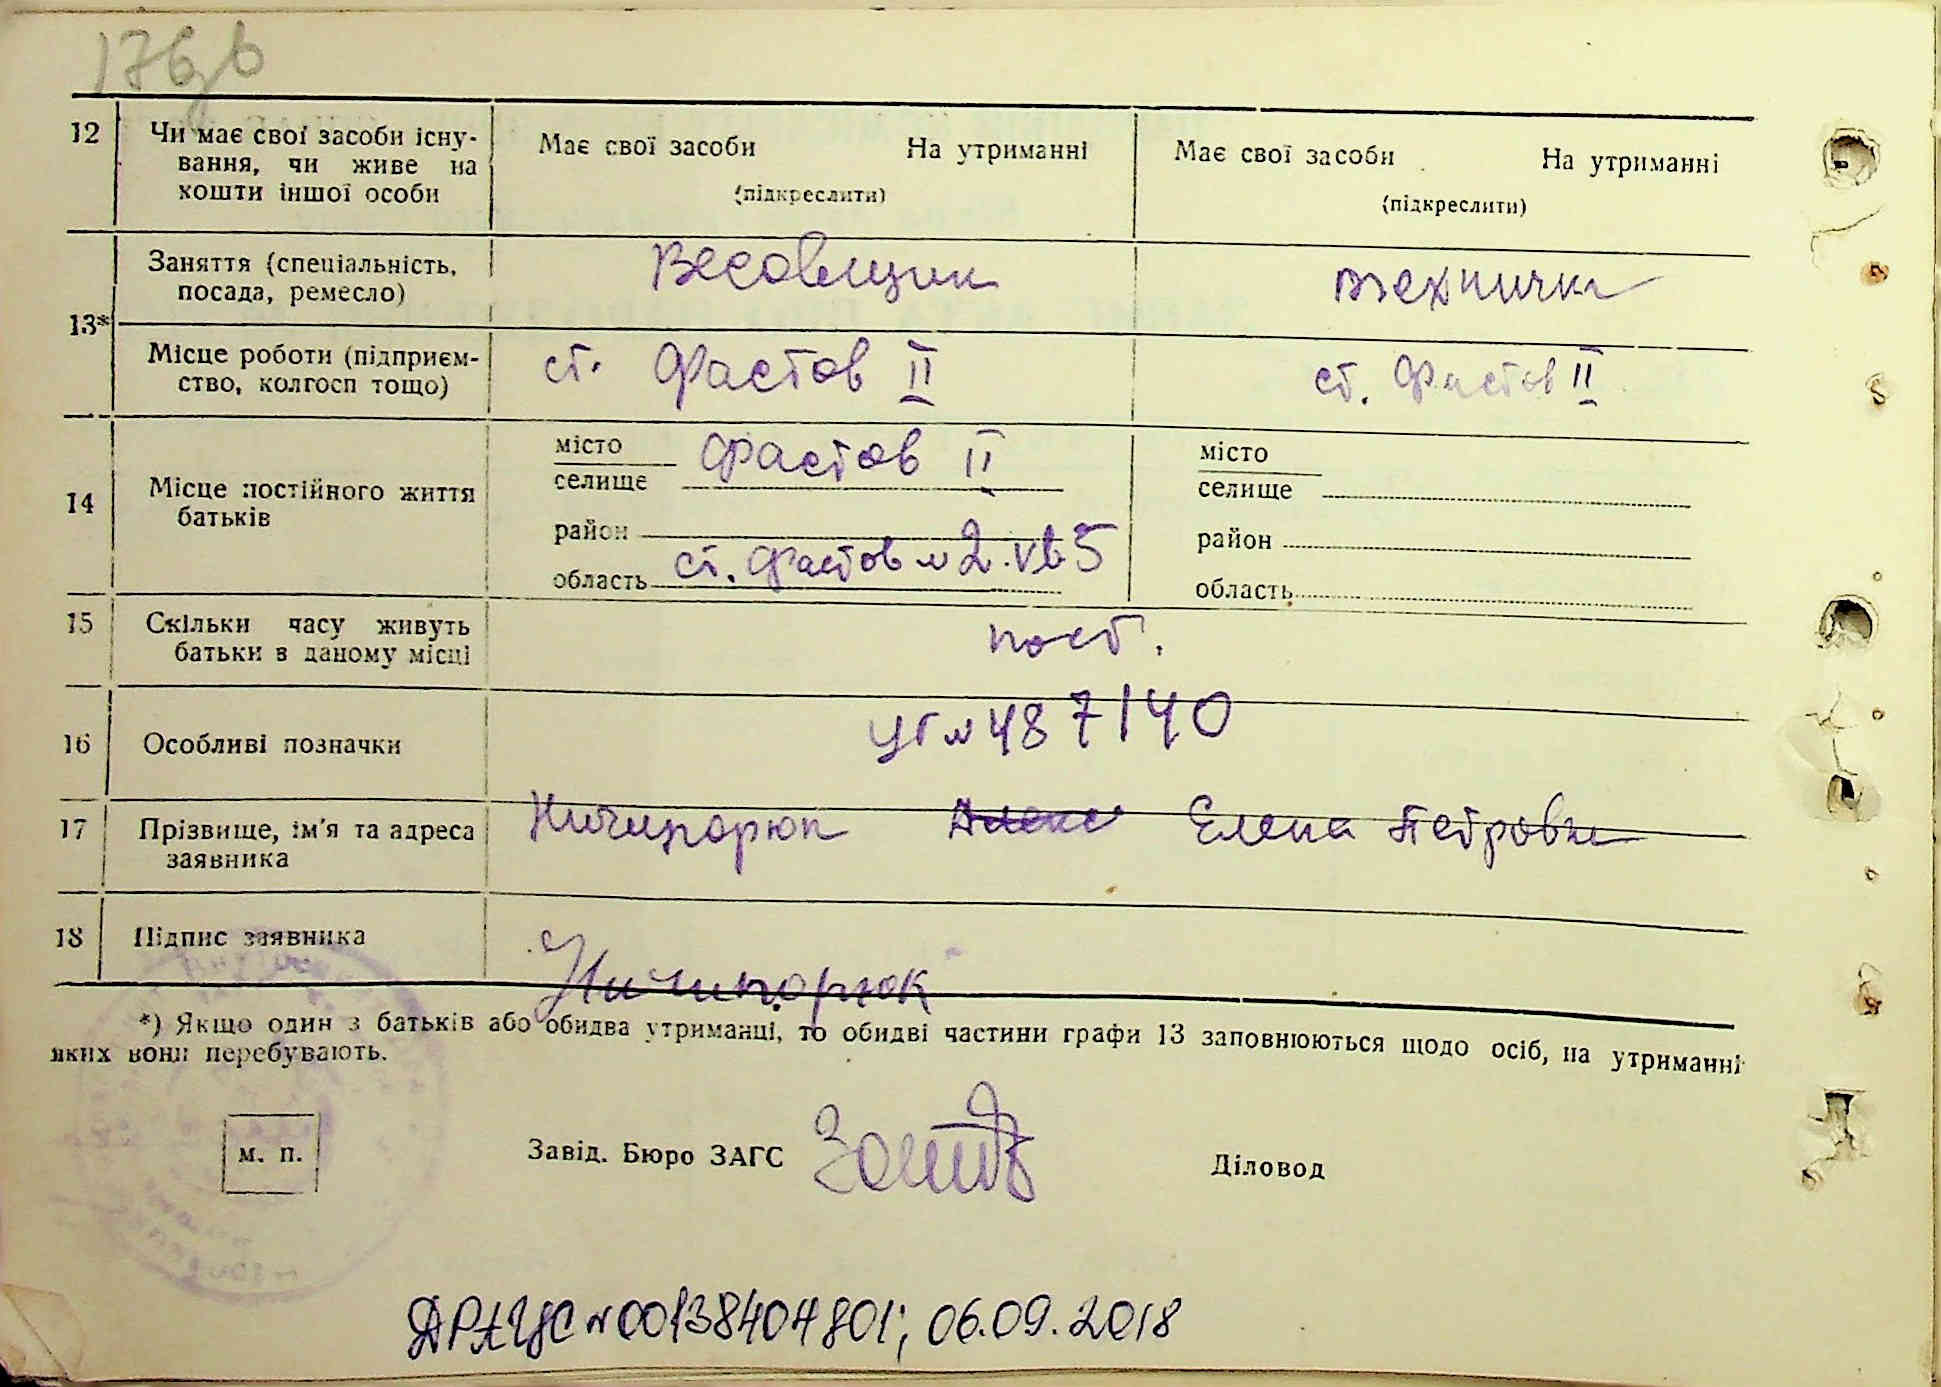 176зв
12 Чи має свої засоби існу- Має свої засоби На утриманні Має свої засоби На утриманні
вання, чи живе на
кошти іншої особи (підкреслити) (підкреслити)
Заняття (спеціальність, Весовщик техничка
посада, ремесло)
13*
Місце роботи (підприєм- ст. Фастов II ст. Фастов II
ство, колгосп тощо)
місто Фастов II місто
селище селище
14 Місце постійного життя
батьків
район район
область ст. Фастов №2. кв 5 область
15 Скільки часу живуть пост.
батьки в даному місці
16 Особливі позначки № 487140
17 Прізвище, ім'я та адреса Ничипорюк Алекс Елена Петровна
заявника
18 Підпис заявника Ничипорюк
*) Якщо один з батьків або обидва утриманці, то обидві частини графи 13 заповнюються щодо осіб, на утриманні
яких вони перебувають.
м. п. Завід. Бюро ЗАГС Діловод
ДРАЦС №00138404801; 06.09.2018